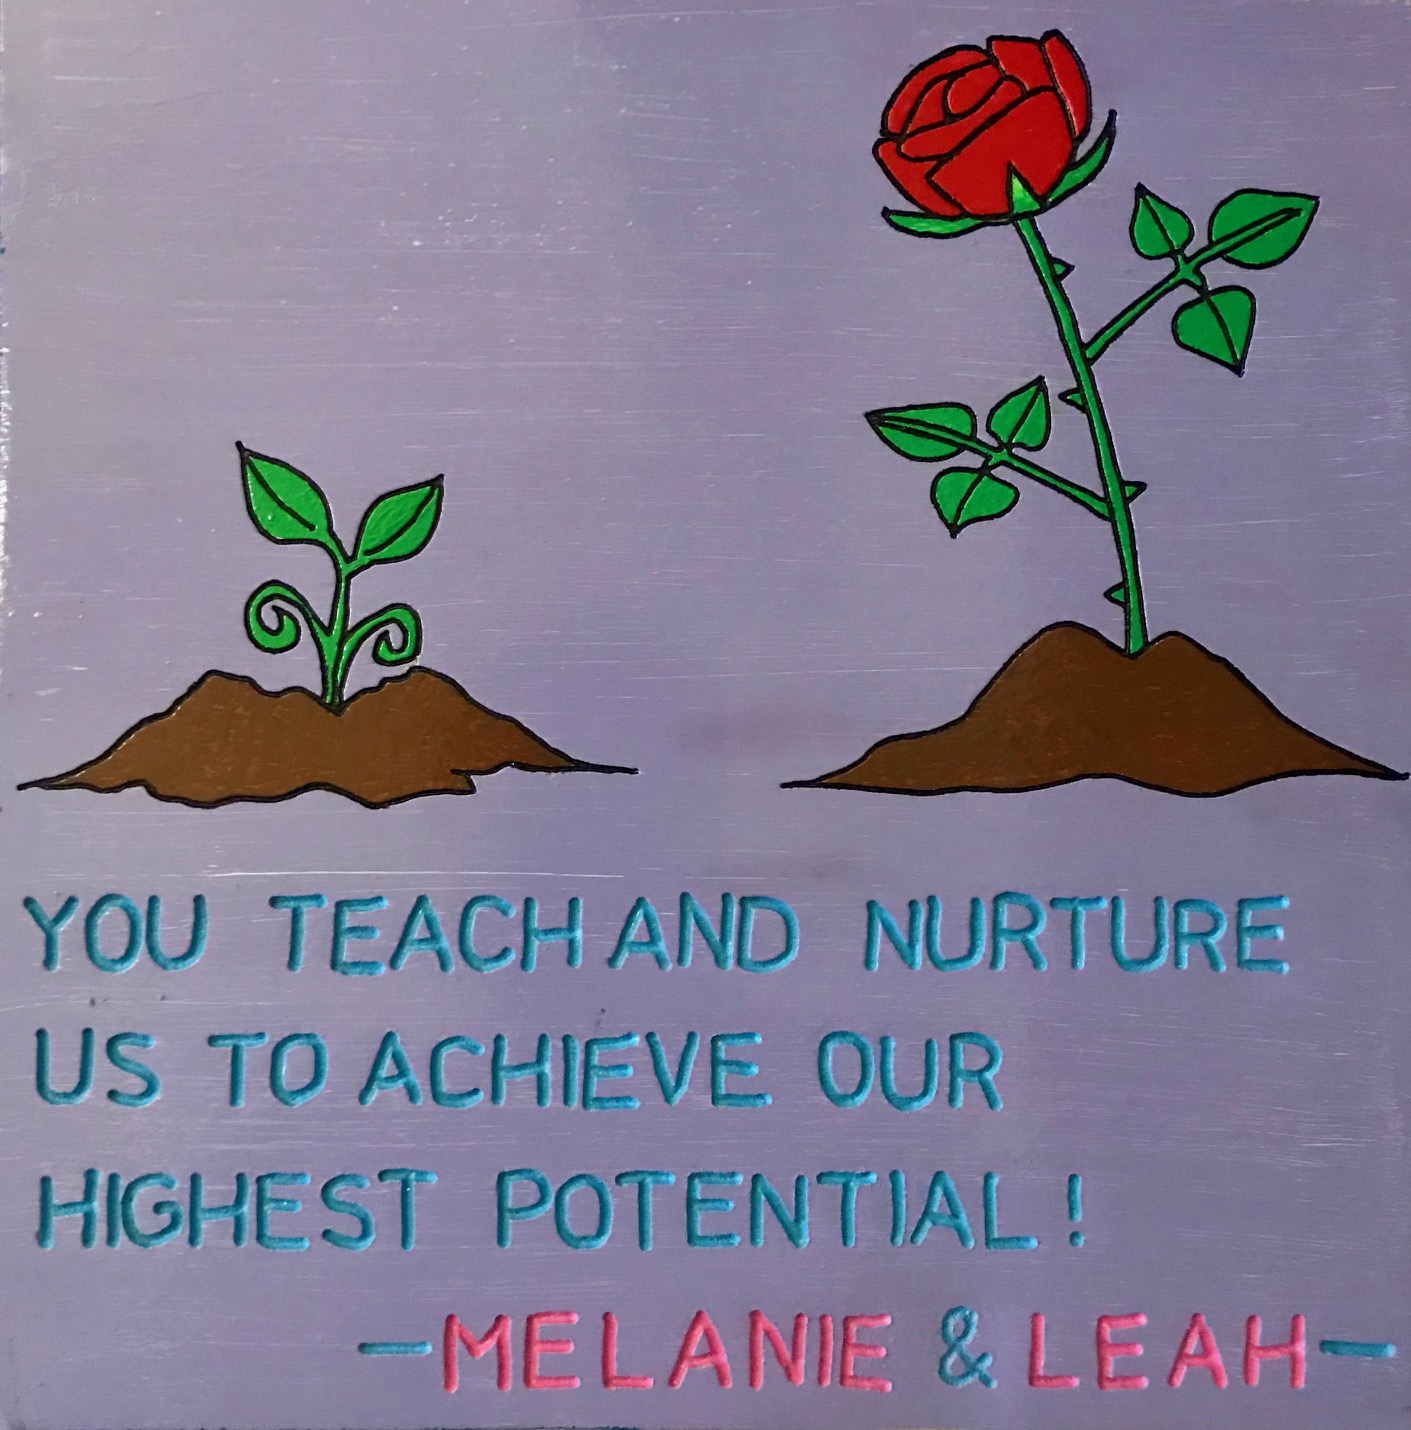 YOU TEACH AND NURTURE
US TO ACHIEVE OUR
HIGHEST POTENTIAL!
—MELANIE & LEAH—